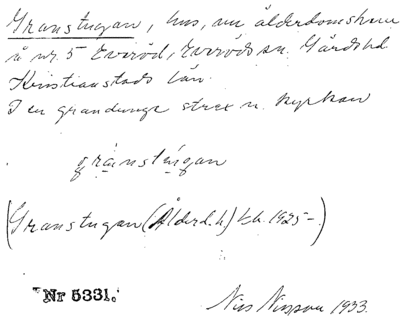 Granstugan, hus, nu ålderdomshem
å nr. 5 Everöd, Everöds sn. Gärds hd
Kristianstads län.
I en grandunge strax n. kyrkan
gránstùgan
(Granstugan (Ålderd.h) Lk. 1925–)
Nr 5331.
Nils Nilsson 1933.